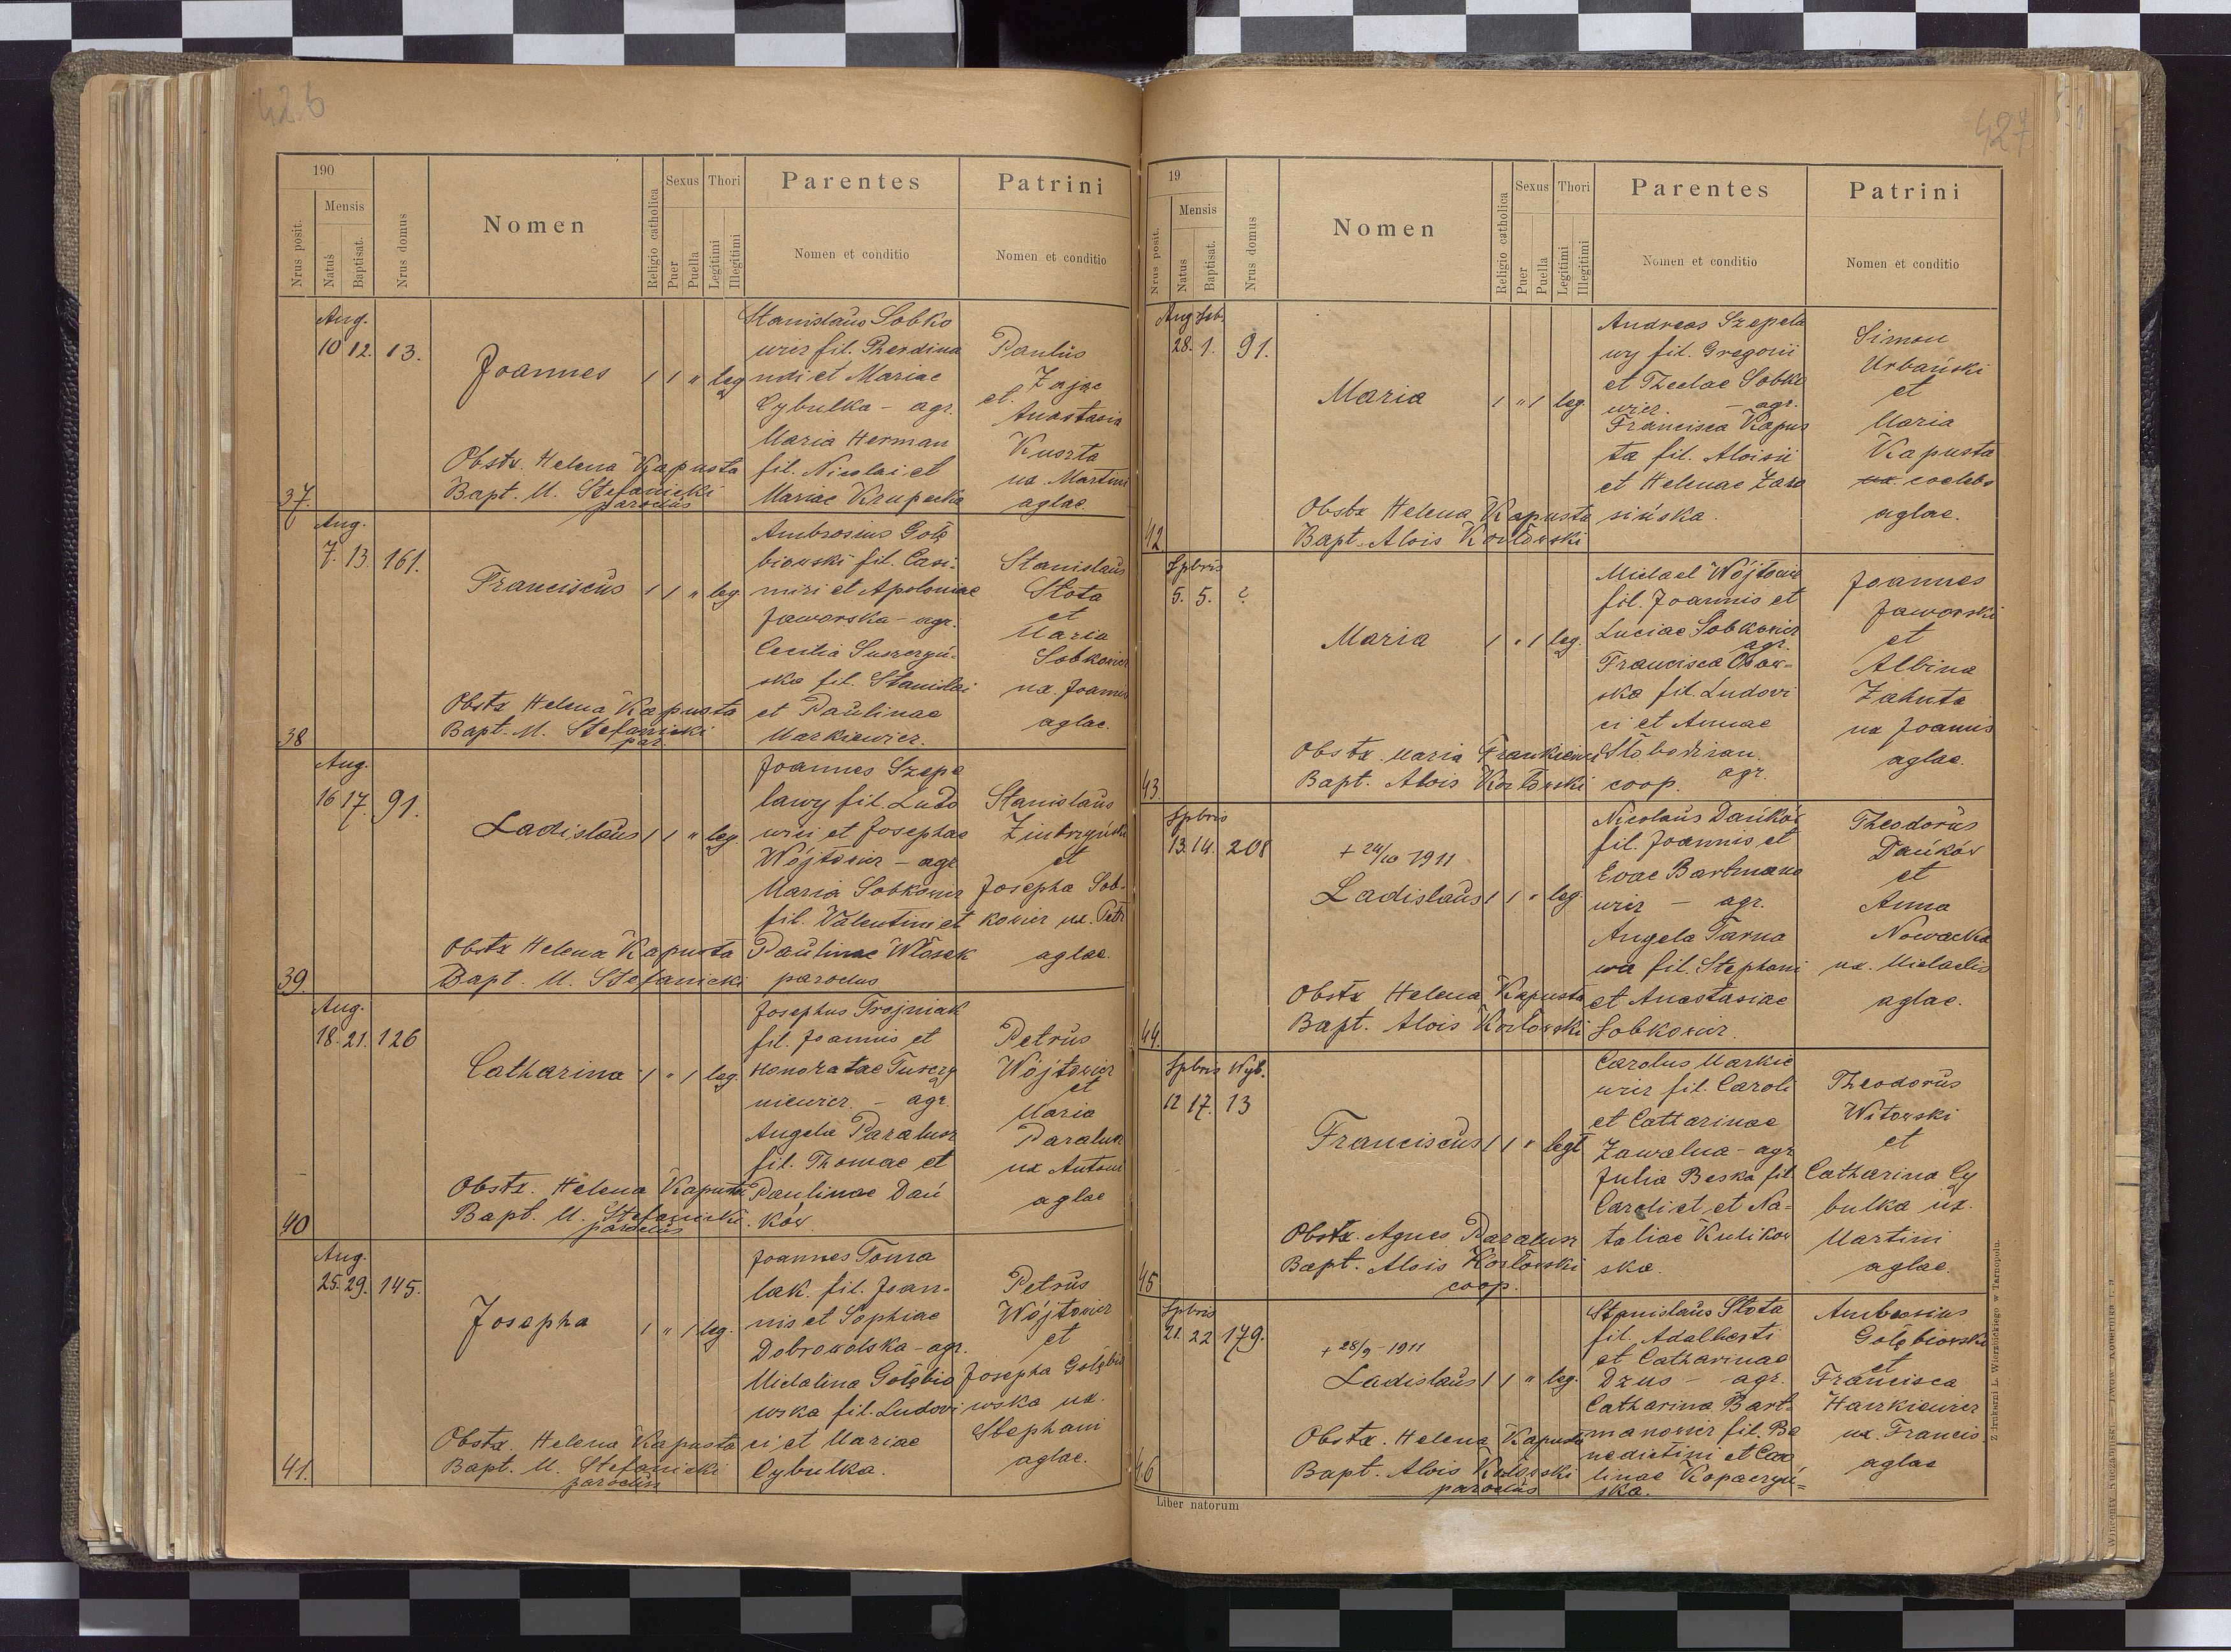 426
190
Nrus posit.
Mensis
Natus
Baptisat.
Nrus domus
Nomen
Religio catholica
Sexus
Puer
Puella
Thori
Legitimi
Illegitimi
Parentes
Nomen et conditio
Patrini
Nomen et conditio
37.
Aug.
10 12. 13.
Joannes
1 1 " leg
Obstx. Helena Kapusta
Bapt. M. Stefanicki
parochus
Stanislaus Sobko
wicz fil. Pherdina
ndi et Mariae
Cybulka - agr.
Maria Herman
fil. Nicolai et
Mariae Krupecka
Paulus
Zając
et.
Anastasia
Kuszta
ux. Martini
aglae.
38
Aug.
7. 13. 161.
Franciscus
1 1 " leg
Obstx Helena Kapusta
Bapt. M. Stefanicki
par.
Ambrosius Gołę
biowski fil. Casi-
miri et Apoloniae
Jaworska - agr.
Cecilia Suszczyń-
ska fil. Stanislai
et Paulinae
Markiewicz.
Stanislaus
Słota
et
Maria
Sobkowicz
ux. Joannis
aglae.
39.
Aug.
16 17. 91.
Ladislaus
1 1 " leg.
Obstx Helena Kapusta
Bapt. M. Stefanicki parochus
Joannes Szepe
lawy fil. Ludo
wici et Josephae
Wójtowicz - agr
Maria Sobkowicz
fil. Valentini et
Paulinae Włosek
Stanislaus
et
Josepha Sob-
kowicz ux. Petri
aglae.
40
Aug.
18. 21. 126
Catharina
1 " 1 leg.
Obstx. Helena Kapusta
Bapt. M. Stefanicki.
parochus
Josephus Trojniak
fil. Joannis et
Honoratae Tuszczy
niewicz. - agr.
Angela Paralusz
fil. Thomae et
Paulinae Dań
ków
Petrus
Wójtowicz
et
Maria
Paralusz
ux Antoni
aglae
41.
Aug.
25. 29. 145.
Josepha
1 " 1 leg.
Obstx. Helena Kapusta
Bapt. M. Stefanicki
parochus
Joannes Toma
lak. fil. Joan-
nis et Sophiae
Dobrowolska - agr.
Michalina Gołębio
wska fil. Ludovi
ci et Mariae
Cybulka.
Petrus
Wójtowicz
et
Josepha Gołębio
wska ux.
Stephani
aglae.
427
19
Nrus posit.
Mensis
Natus
Baptisat.
Nrus domus
Nomen
Religio catholica
Sexus
Puer
Puella
Thori
Legitimi
Illegitimi
Parentes
Nomen et conditio
Patrini
Nomen et conditio
42
Aug
28. 1. 91.
Maria
1 " 1 leg.
Obstx Helena Kapusta
Bapt. Alois Kozłowski
Andreas Szepela
wy fil. Gregorii
et Theclae Sobko
wicz. - agr.
Francisca Kapus
ta fil. Aloisii
et Helenae Zaro
sińska.
Simon
Urbański
et
Maria
Kapusta
ux. coelebs
aglae.
43.
Spbris
5. 5. 2
Maria
1 " 1 leg.
Obstx. Maria
Bapt. Alois Kozłowski coop.
Michael Wójtowicz
fil. Joannis et
Luciae Sobkowicz
agr.
Francisca
ska fil. Ludovi
ci et Annae
Słobodzian.
agr.
Joannes
Jaworski
et
Albina
Zahuta
ux Joannis
aglae.
44.
Spbris
13. 14. 208
+ 24/10 1911
Ladislaus
1 1 " leg.
Obstx Helena Kapusta
Bapt. Alois Kozłowski
Nicolaus Dańków
fil. Joannis et
Evae Bartmano
wicz - agr.
Angela Tarno
wa fil. Stephani
et Anastasiae
Sobkowicz.
Theodorus
Dańków
et
Anna
Nowacka
ux. Michaelis
aglae.
45
Spbris Wyb.
12 17. 13
Franciscus
1 1 " legt
Obstx. Agnes Paralusz
Bapt. Alois Kozłowski
coop.
Carolus Markie
wicz fil. Caroli
et Catharinae
Zawalna - agr
Julia Beska fil
Caroli et et Na-
taliae Kulikow
ska.
Theodorus
Witowski
et
Catharina Cy
bulka ux.
Martini
aglae.
46
Spbris
21. 22 179.
+ 28/9 - 1911
Ladislaus
1 1 " leg.
Obstx. Helena Kapusta
Bapt. Alois Kozłowski
parochus
Stanislaus Słota
fil. Adalberti
et Catharinae
Dzus - agr.
Catharina Bart-
manowicz fil. Be
nedictini et Caro
linae Kopaczyń-
ska.
Ambrosius
Gołębiowski
et
Francisca
Harkiewicz
ux. Francis
aglae
Liber natorum
Z drukarni L. Wierzbickiego w Tarnopolu.